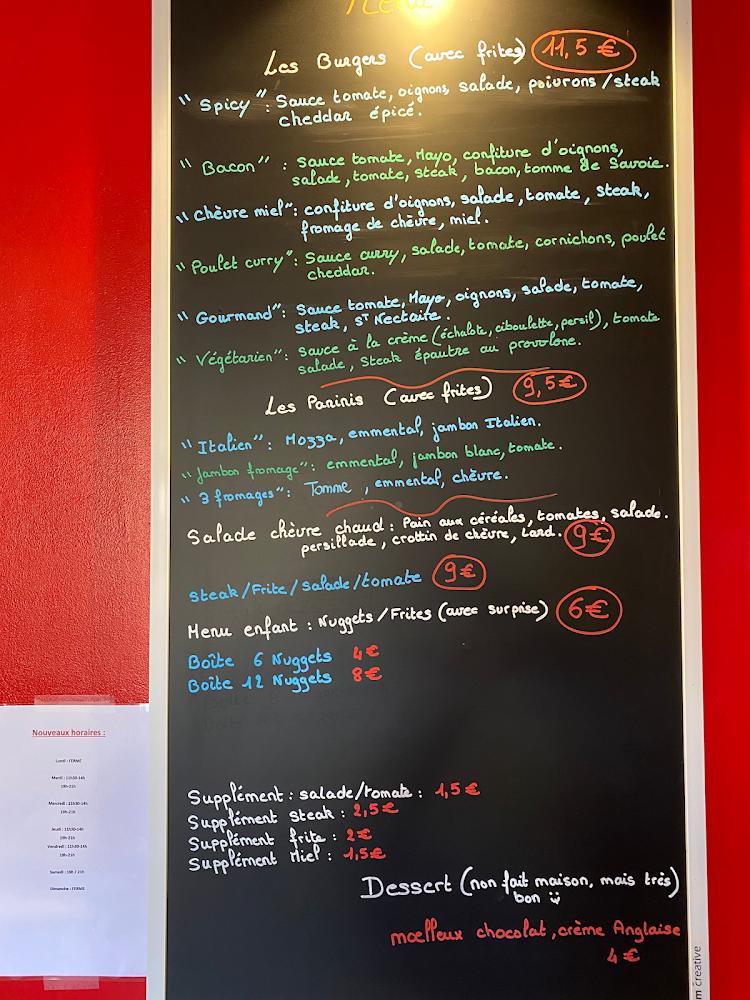 Menu
Les Burgers (avec frites) 11,5 €
"Spicy": Sauce tomate, oignons, salade, poivrons/steak
cheddar épicé.
"Bacon" : Sauce tomate, Mayo, confiture d'oignons,
salade, tomate, steak, bacon, tomme de Savoie.
"chèvre miel": confiture d'oignons, salade, tomate, steak,
fromage de chèvre, miel.
"Poulet curry": Sauce curry, salade, tomate, cornichons, poulet
cheddar.
"Gourmand": Sauce tomate, Mayo, oignons, salade, tomate,
steak, St Nectaire.
"Végétarien": sauce à la crème (échalote, ciboulette, persil), tomate
salade, steak épautre au provolone.
Les Paninis (avec frites) 9,5€
"Italien": Mozza, emmental, jambon Italien.
"Jambon fromage": emmental, jambon blanc, tomate.
"3 fromages": Tomme, emmental, chèvre.
Salade chèvre chaud: Pain aux céréales, tomates, salade.
persillade, crottin de chèvre, Lard. 9€
Steak/Frite/Salade/tomate 9€
Menu enfant : Nuggets/Frites (avec surprise) 6€
Boîte 6 Nuggets 4€
Boîte 12 Nuggets 8€
Supplément: salade/tomate: 1,5€
Supplément steak: 2,5€
Supplément frite: 2€
Supplément Miel: 1,5€
Dessert (non fait maison, mais très)
bon
moelleux chocolat, crème Anglaise
4€
Nouveaux horaires :
Lundi : FERMÉ
Mardi : 11h30-14h
19h-21h
Mercredi : 11h30-14h
19h-21h
Jeudi : 11h30-14h
19h-21h
Vendredi : 11h30-14h
19h-21h
Samedi : 19h / 21h
Dimanche : FERMÉ
creative